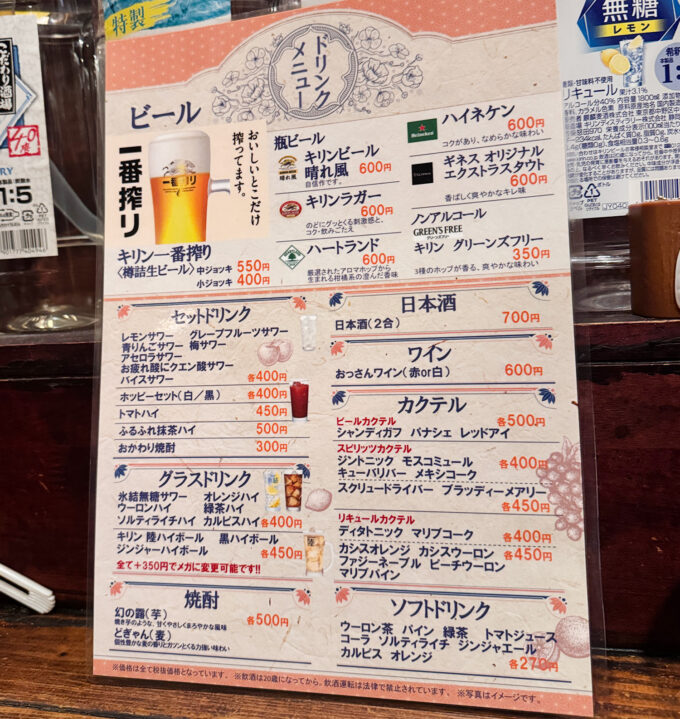 特製
こだわり酒場
40度
1:5
無糖
レモン
果汁3.1%
ドリンク
メニュー
ビール
一番搾り
おいしいとこだけ
搾ってます。
キリン一番搾り
〈樽詰生ビール〉中ジョッキ 550円
小ジョッキ 400円
瓶ビール
キリンビール
晴れ風 600円
自信作です。
キリンラガー
600円
のどにグッとくる刺激感と、
コク・飲みごたえ
ハートランド
600円
厳選されたアロマホップから
生まれる柑橘系の澄んだ香味
ハイネケン
600円
コクがあり、なめらかな味わい
ギネス オリジナル
エクストラスタウト
600円
香ばしく爽やかなキレ味
ノンアルコール
GREEN'S FREE
キリン グリーンズフリー
350円
3種のホップが香る、爽やかな味わい
セットドリンク
レモンサワー グレープフルーツサワー
青りんごサワー 梅サワー
アセロラサワー
お疲れ酸にクエン酸サワー
バイスサワー 各400円
ホッピーセット(白/黒) 各400円
トマトハイ 450円
ふるふれ抹茶ハイ 500円
おかわり焼酎 300円
グラスドリンク
氷結無糖サワー オレンジハイ
ウーロンハイ 緑茶ハイ
ソルティライチハイ カルピスハイ 各400円
キリン 陸ハイボール 黒ハイボール
ジンジャーハイボール 各450円
全て+350円でメガに変更可能です!!
焼酎
幻の露(芋)
焼き芋のような、甘くやさしくまろやかな風味
各500円
どぎゃん(麦)
個性豊かな麦の香りとガツンとくる力強い味わい
日本酒
日本酒(2合) 700円
ワイン
おっさんワイン(赤or白) 600円
カクテル
ビールカクテル 各500円
シャンディガフ パナシェ レッドアイ
スピリッツカクテル
ジントニック モスコミュール
キューバリバー メキシコーク 各400円
スクリュードライバー ブラッディーメアリー
各450円
リキュールカクテル
ディタトニック マリブコーク 各400円
カシスオレンジ カシスウーロン 各450円
ファジーネーブル ピーチウーロン
マリブパイン
ソフトドリンク
ウーロン茶 パイン 緑茶 トマトジュース
コーラ ソルティライチ ジンジャエール
カルピス オレンジ 各270円
※価格は全て税抜価格となっています。 ※飲酒は20歳になってから。飲酒運転は法律で禁止されています。 ※写真はイメージです。